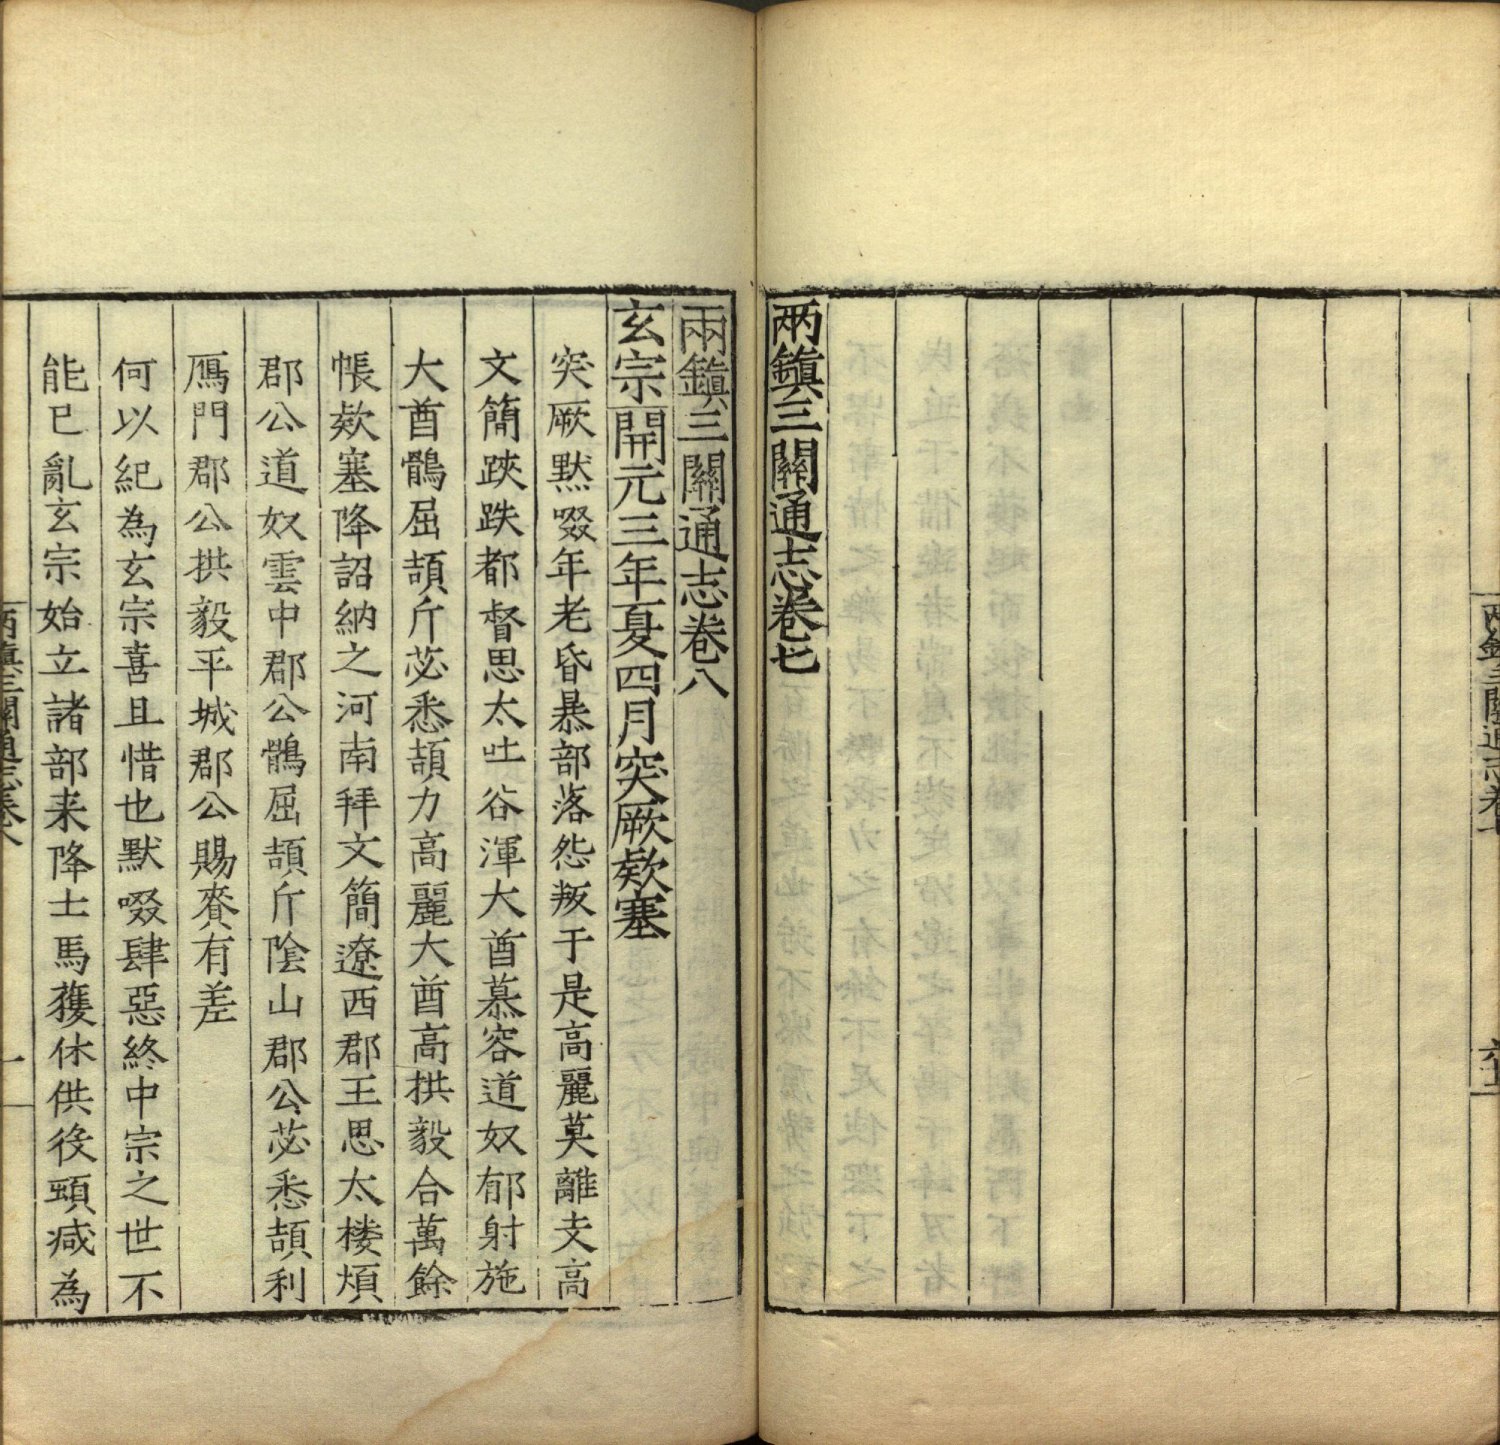 兩鎮三關通志卷七
兩鎮三關通志卷八
玄宗開元三年夏四月突厥欵塞
突厥黙啜年老昏暴部落怨叛于是高麗莫離支高
文簡跌跌都督思太吐谷渾大酋慕容道奴郁射施
大酋鶻屈頡斤苾悉頡力高麗大酋高拱毅合萬餘
帳欵塞降詔納之河南拜文簡遼西郡王思太楼煩
郡公道奴雲中郡公鶻屈頡斤陰山郡公苾悉頡利
鴈門郡公拱毅平城郡公賜賚有差
何以紀為玄宗喜且惜也默啜肆惡終中宗之世不
能已亂玄宗始立諸部来降士馬獲休供役頓减為
兩鎮三關通志卷八
一